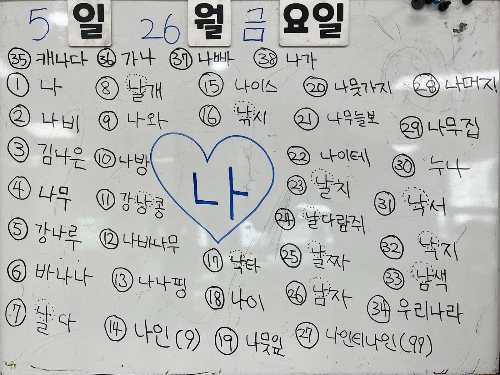 5 일 26 월 금 요일
㉟ 캐나다 ㊱ 가나 ㊲ 나빠 ㊳ 나가
① 나 ⑧ 날개 ⑮ 나이스 ⑳ 나뭇가지 ㉘ 나머지
② 나비 ⑨ 나와 ⑯ 낚시 ㉑ 나무늘보 ㉙ 나무집
③ 김나은 ⑩ 나방 나 ㉒ 나이테 ㉚ 누나
④ 나무 ⑪ 강낭콩 ㉓ 날치 ㉛ 낙서
⑤ 강나루 ⑫ 나비나무 ㉔ 날다람쥐 ㉜ 낙지
⑥ 바나나 ⑬ 나나핑 ⑰ 낙타 ㉕ 날짜 ㉝ 남색
⑦ 날다 ⑱ 나이 ㉖ 남자 ㉞ 우리나라
⑭ 나인(9) ⑲ 나뭇잎 ㉗ 나인티나인(99)